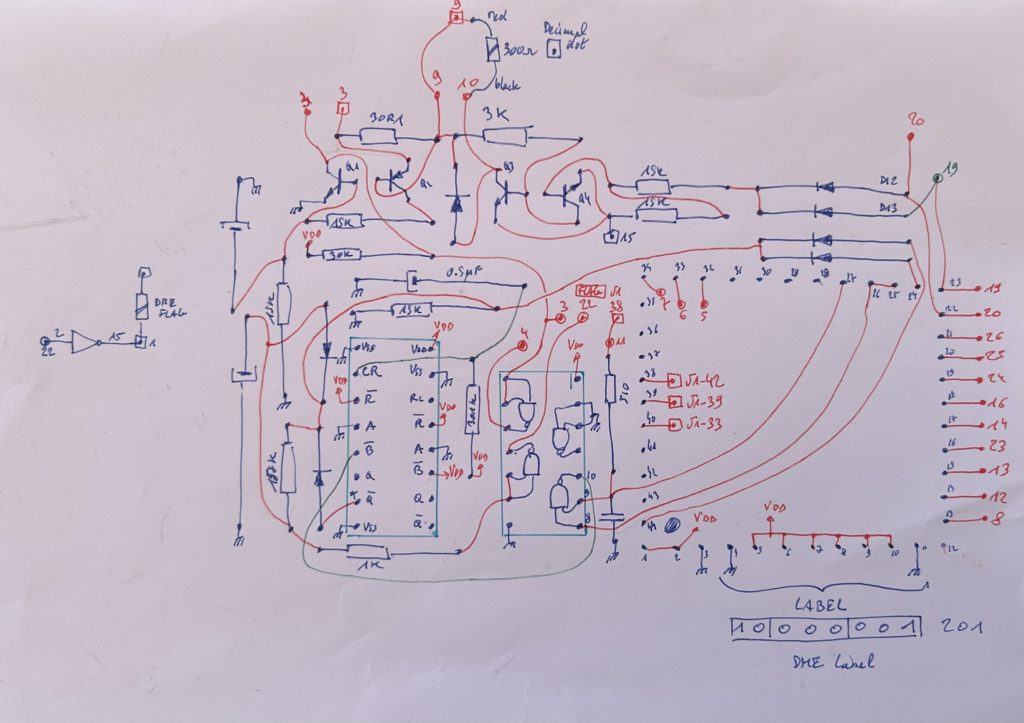 9
red
300Ω
Decimal dot
black
9
10
3
30R1
3K
20
Q1
Q2
Q3
Q4
15K
D12
19
15K
D13
15K
VDD
30K
15
0.5µF
15K
FLAG
J1
3
22
38
4
11
VDD
2
22
15
1
DME
FLAG
15K
VSS
VDD
CR
VSS
R̅
RC
A
R̅
B̅
A
Q
B̅
Q̅
Q
VSS
Q̅
VDD
VDD
VDD
VDD
VDD
301K
1K
510
10
9
8
34
33
32
31
30
29
28
27
26
25
24
7
6
5
35
36
37
38
J1-42
39
J1-39
40
J1-33
41
42
43
44
23
19
22
20
21
26
20
25
19
24
18
16
17
14
16
23
15
13
12
13
8
VDD
VDD
1
2
3
4
5
6
7
8
9
10
12
LABEL
10 000 001 201
DME Label